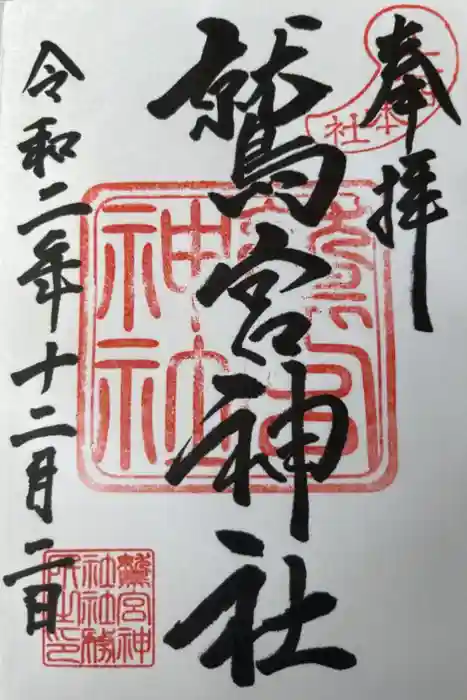 奉拝
鷲宮神社
令和二年十二月二日
鷲宮神社
鷲宮神
社社務
所之印